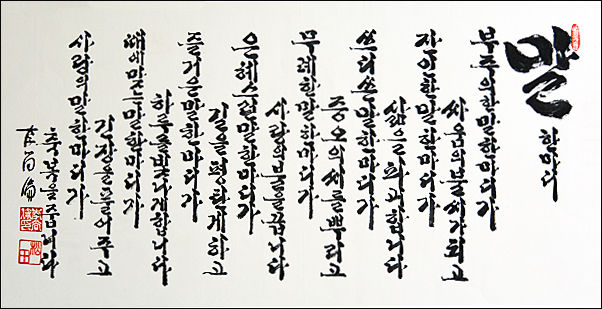 말
한마디
부주의한 말 한마디가
싸움의 불씨가 되고
잔인한 말 한마디가
삶을 파괴합니다
쓰디 쓴 말 한마디가
증오의 씨를 뿌리고
무례한 말 한마디가
사랑의 불을 끕니다
은혜스런 말 한마디가
길을 평탄케 하고
즐거운 말 한마디가
하루를 빛나게 합니다
때에 맞는 말 한마디가
긴장을 풀어주고
사랑의 말 한마디가
축복을 줍니다